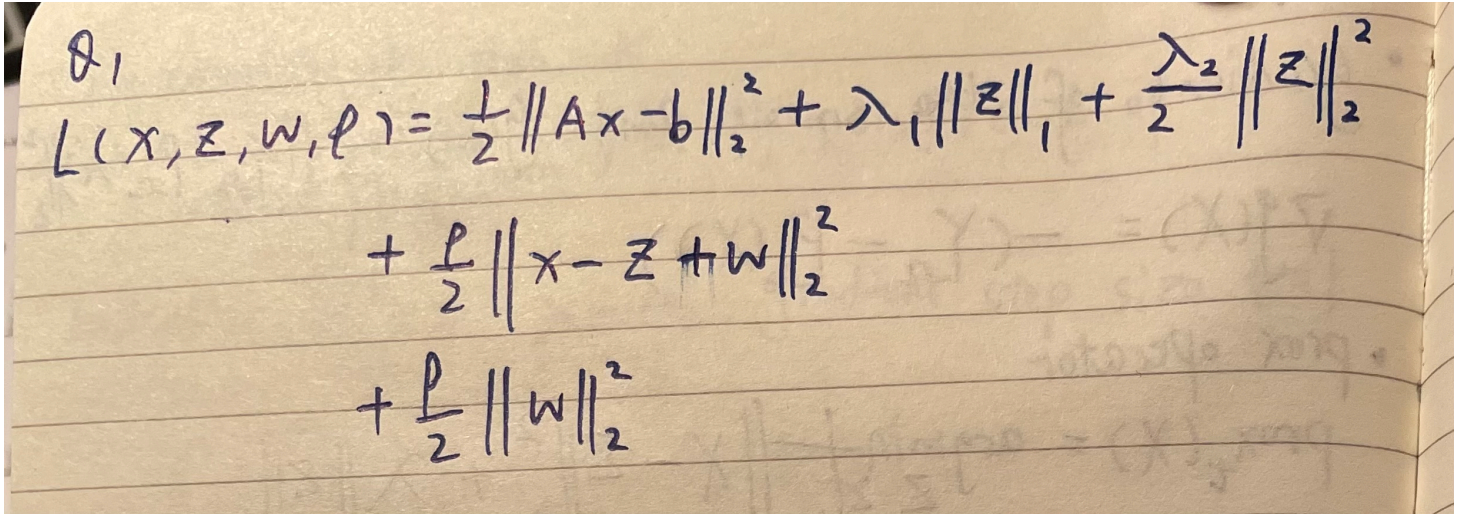 Q1
L(x, z, w, ρ) = 1/2 ||Ax - b||₂² + λ₁||z||₁ + λ₂/2 ||z||₂²
+ ρ/2 ||x - z + w||₂²
+ ρ/2 ||w||₂²